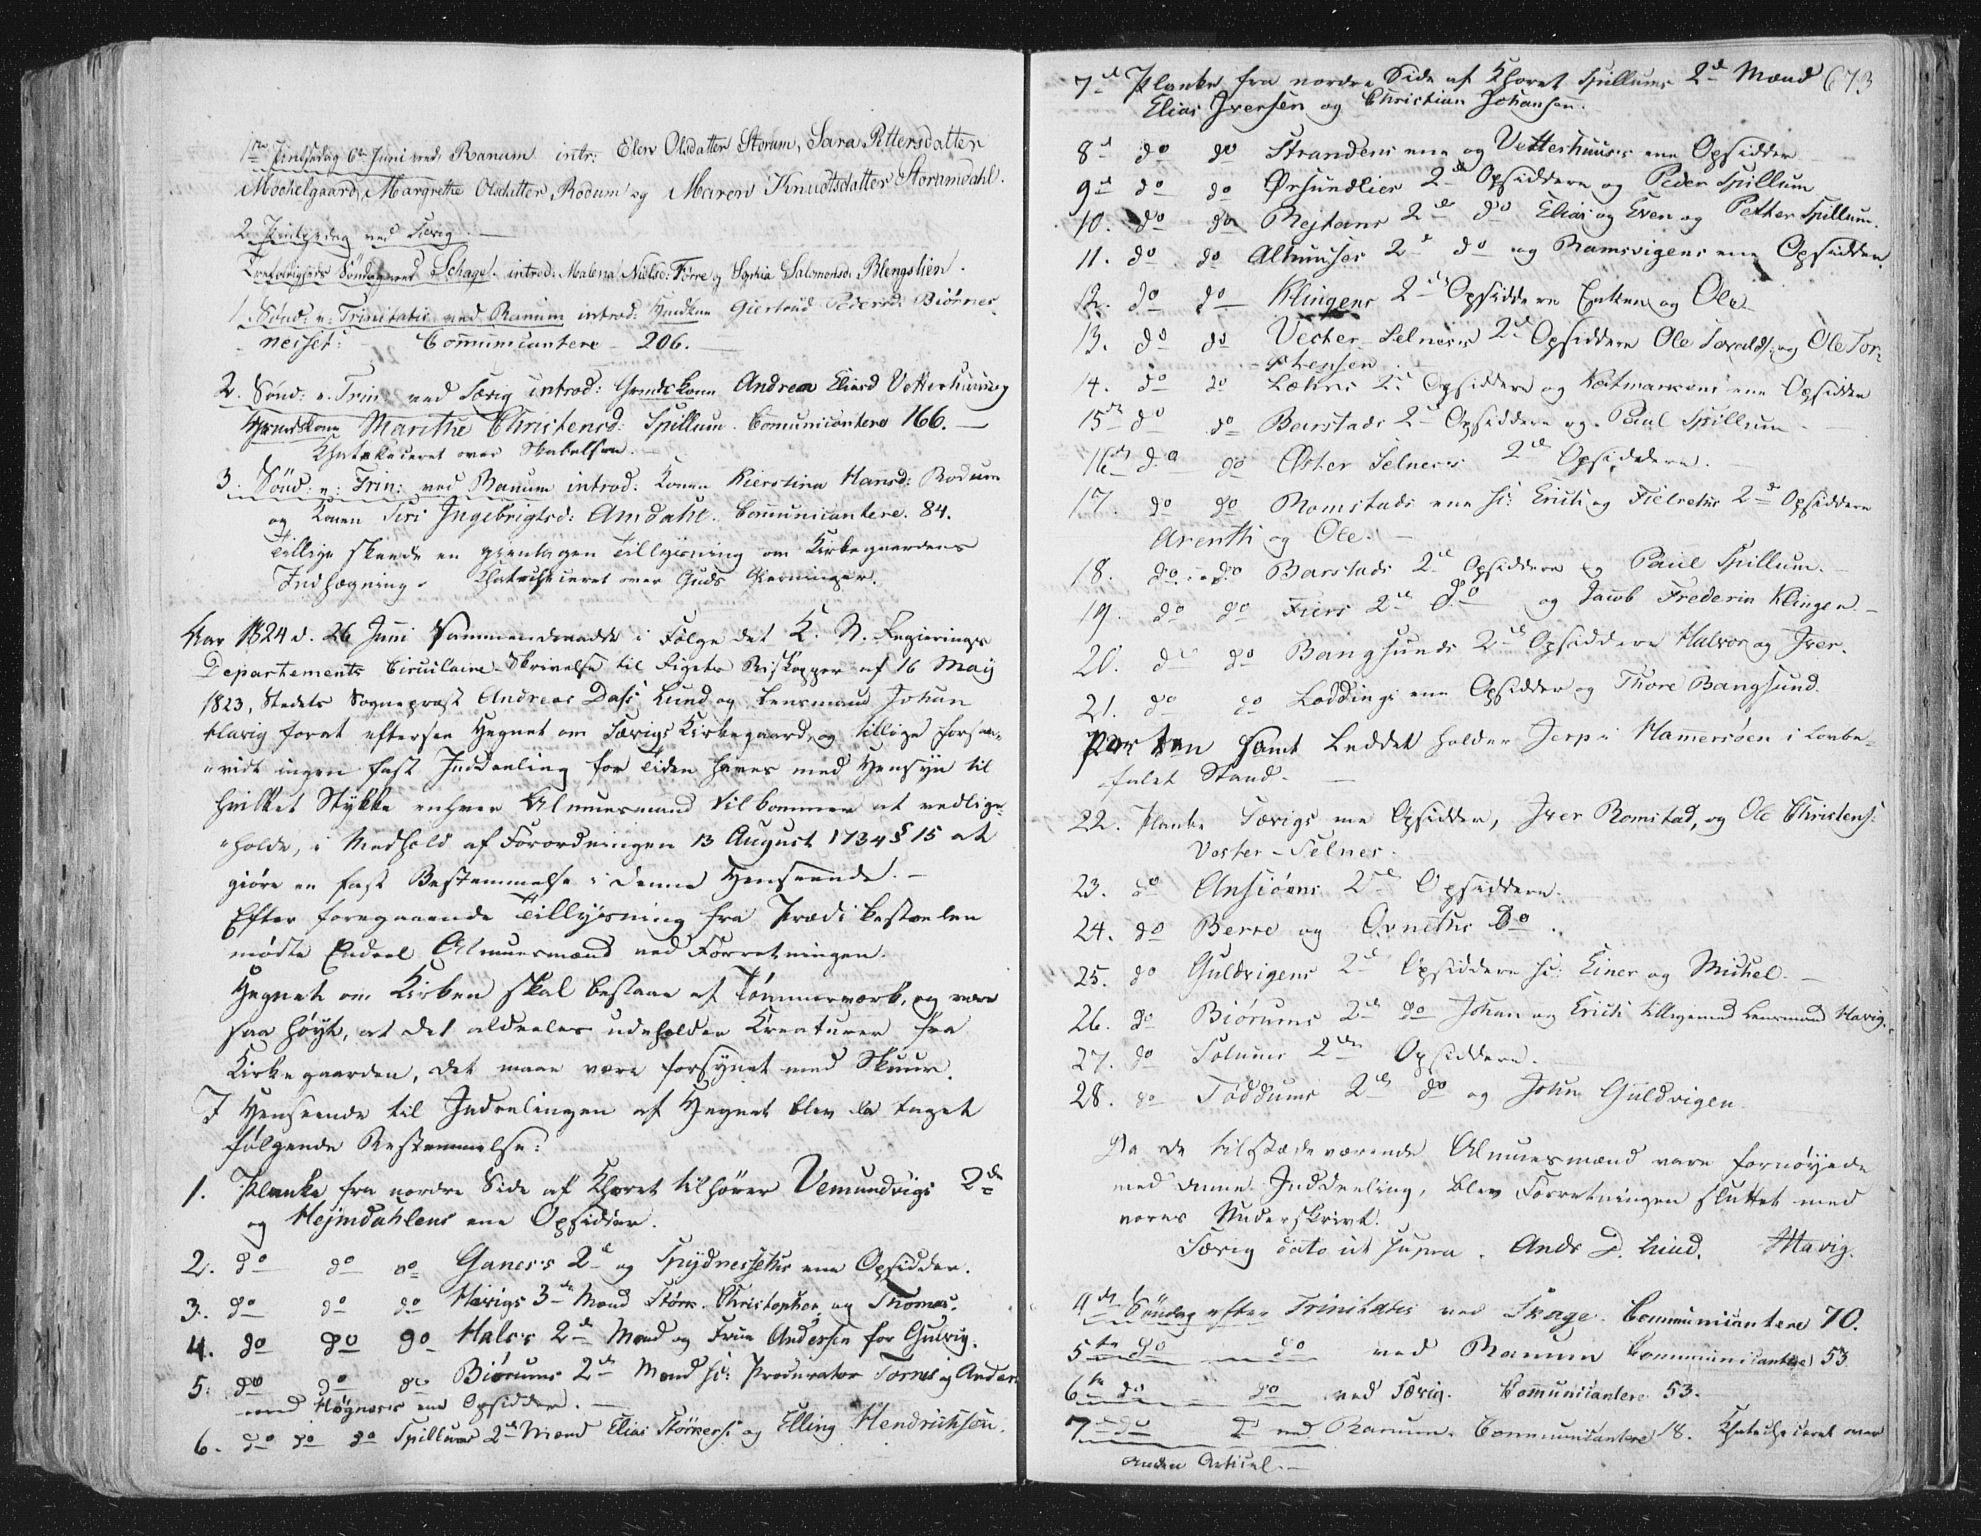 1ste Pintsedag 6te Juni ved Ranum intr: Elen Olsdatter Storum, Sara Pettersdatter
Mochelgaard, Margrethe Olsdatter Rodum og Maren Knudtsdatter Storamdahl.
2 Pintsedag ved Særig.
Trefoldigheds Søndag ved Schage. introd: Malena Nielsd: Førre og Sophia Salomonsd: Blengslien.
1 Sønd: e: Trinitatis ved Ranum introd: Giertrud Pedersd: Biørnes
nesset: Communicantere 206.
2. Sønd: e. Trin: ved Særig introd: Andrea Eliasd Vetterhuus og
Marithe Christensd: Spillum. Comunicantere 166.
Chatekiceret over Skabelsen.
3. Sønd: e: Trin: ved Ranum introd: Konen Kierstina Hansd: Rodum
og Konen Siri Ingebrigtsd: Amdahl. Communicantere. 84.
Tillige skeede en gientagen Tillysning om Kirkegaardens
Indhægning. Chatechiceret over Guds Gierninger.
Aar 1824 d. 26 Juni Sammentraadte i Følge det K. N. Regierings
Departements Circulaire Skrivelse til Rigets Biskopper af 16 May
1823, Stedets Sognepræst Andreas Dass Lund og Lensmand Johan
Havig foret eftersee Hegnet om Særigs Kirkegaard, og tillige forsaa-
vidt ingen fast Inddeeling for Tiden haves med Hensyn til
hvilket Stykke enhver Almuesmand tilkommer at vedlige-
holde, i Medhold af Forordningen 13 August 1734 § 15 at
giøre en fast Bestemmelse i denne Henseende.
Efter foregaaende Tillysning fra Prædikestoelen
mødte Endeel Almuesmænd ved Forretningen.
Hegnet om Kirken skal bestaae af Tømmerværk, og være
saa høyt, at det aldeeles udeholder Kreaturer fra
Kirkegaarden, det maae være forsynet med Skuur.
I Henseende til Inddeelingen af Hegnet blev da taget
følgende Bestemmelse:
1. Planke fra nordre Side af Choret tilhører Vemundvigs 2de
og Hejmdahlens ene Opsidder.
2. do do do Ganes's 2de og Spydnessets ene Opsidder.
3. do do do Havigs 3de Mænd Størk. Christopher og Thomas.
4. do do do Hals's 2de Mænd og Andersen for Gulvig.
5. do do do Biørums 2de Mænd sc: Procurator Tornes og Anders
med Høgnes's ene Opsidder.
6. do do do Spillums 2de Mænd Elias Størkers: og Elling Hendrichsen.
7de Planke fra nordre Side af Choret Spillums 2de Mænd 673
Elias Iversen og Christian Johansen.
8de do do Strandens ene og Vetterhuus's ene Opsidder
9de do do Ørsundlies 2de Opsiddere og Peder Spillum
10. do do Rejtans 2de do Elias og Even og Petter Spillum.
11. do do Alhuuses 2de do og Ramsvigens ene Opsidder.
12. do do Klingens 2de Opsiddere Enken og Ole
13. do do Vester Selness 2de Opsiddere Ole og Ole Tor-
stensen.
14. do do 2de Opsiddere og ene Opsidder
15de do do Barstads 2de Opsiddere og Paul Spillum
16de do do Øster Selness 2de Opsiddere.
17. do do Romstads ene sc: Erich og 2de Opsiddere
Arenth og Ole.
18. do do Barstads 2de Opsiddere og Paul Spillum.
19. do do Fiers 2de do og Jacob Frederik Klingen
20. do do Bangsunds 2de Opsiddere Halvor og Iver.
21. do do Loddings ene Opsidder og Thore Bangsund.
Porten samt Leddet holder Jerp i Hamersøen i Lovbe-
falet Stand.
22. Planke Særigs ene Opsidder, Iver Romstad, og Ole Christens:
Vester-Selnes.
23. do Ansiøens 2de Opsiddere.
24. do Berre og Ovneths Do
25. do Guldvigens 2de Opsiddere sc: Einer og Michel.
26. do Biørums 2de do Johan og Erich tilligemed Lensmand Havig.
27. do Solums 2de Opsiddere.
28. do Føddums 2de do og John Guldvigen
Da de tilstædeværende Almuesmænd vare fornøyede
med denne Inddeeling, blev Forretningen sluttet med
vores Underskrivt.
Særig dato ut supra. Ands D. Lund. Havig.
4de Søndag efter Trinitatis ved Skage. Communicantere 70.
5te do do ved Ranum Communicantere 53.
6te do do ved Særig. Communicantere 53.
7de do Do ved Ranum. Communicantere 18. Chatechiceret over
anden Articel.